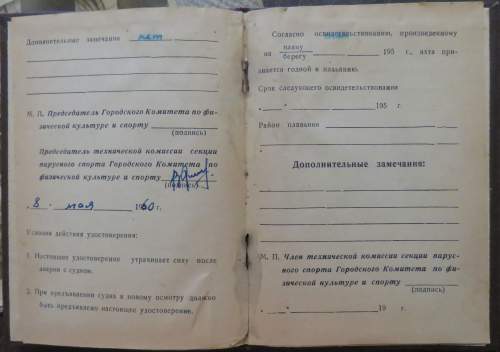 Дополнительные замечания нет
М. П. Председатель Городского Комитета по фи-
зической культуре и спорту
(подпись)
Председатель технической комиссии секции
парусного спорта Городского Комитета по
физической культуре и спорту
(подпись)
„8“ мая 1960 г.
Условия действия удостоверения:
1. Настоящее удостоверение утрачивает силу после
аварии с судном.
2. При предъявлении судна к новому осмотру должно
быть предъявлено настоящее удостоверение.
Согласно освидетельствованию, произведенному
на плаву
берегу
195 г., яхта приз-
нается годной к плаванию.
Срок следующего освидетельствования
„ “ 195 г.
Район плавания
Дополнительные замечания:
М. П. Член технической комиссии секции парус-
ного спорта Городского Комитета по фи-
зической культуре и спорту
(подпись)
„ “ 19 г.